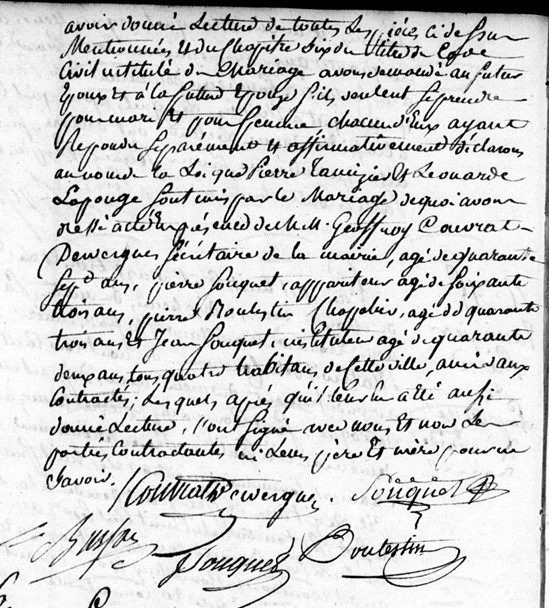 avoir donné Lecture de toutes Les pièces ci dessus
Mentionnées et du Chapitre Six du titre du Code
Civil intitulé du Mariage avons demandé au futur
Epoux et à la future Epouse s'ils veulent se prendre
pour mari et pour femme chacun d'Eux ayant
Repondu séparément et affirmativement déclarons
au nom de la Loi que Pierre et Leonarde
Lapouge sont unis par le Mariage de quoi avons
dressé acte En présence de M.M. Geoffroy Couvrat
Desvergnes Sécrétaire de la mairie, agé de quarante
sept ans, pierre Souquet, appariteur agé de soixante
trois ans, pierre Boulestin Chapelier, agé de quarante
trois ans et Jean Souquet, instituteur agé de quarante
deux ans, tous quatre habitans de cette ville, amis aux
Contractés; Lesquels, après qu'il leur en a été aussi
donné Lecture, l'ont Signé avec nous Et non Les
parties Contractantes ni Leurs pere Et mère pour ne
Savoir.
Couvrat Desvergnes Souquet
Souquet Boulestin